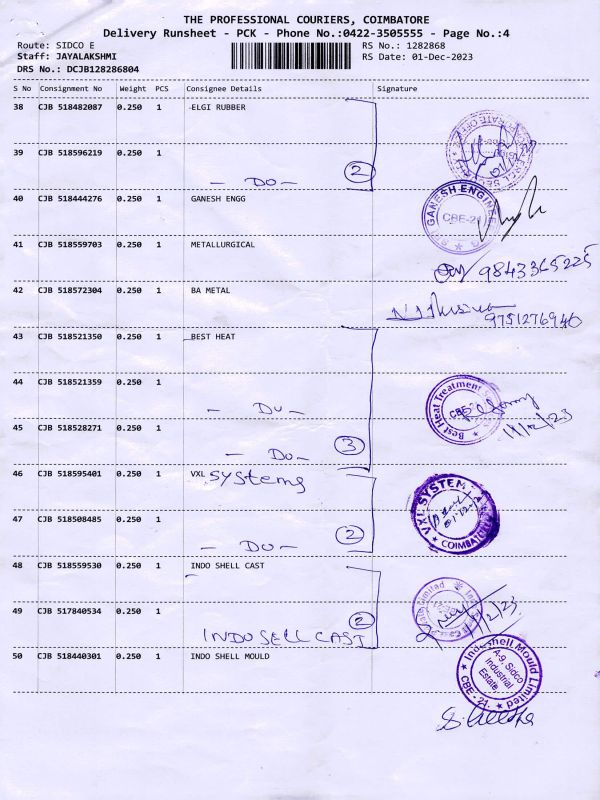 THE PROFESSIONAL COURIERS, COIMBATORE
Delivery Runsheet - PCK - Phone No.:0422-3505555 - Page No.:4
Route: SIDCO E
RS No.: 1282868
Staff: JAYALAKSHMI
RS Date: 01-Dec-2023
DRS No.: DCJB128286804
S No Consignment No Weight PCS Consignee Details Signature
38 CJB 518482087 0.250 1 ELGI RUBBER
39 CJB 518596219 0.250 1
- DO - 2
40 CJB 518444276 0.250 1 GANESH ENGG
GANESH ENGINEE
CBE-21
41 CJB 518559703 0.250 1 METALLURGICAL
9843365225
42 CJB 518572304 0.250 1 BA METAL
9751276940
43 CJB 518521350 0.250 1 BEST HEAT
44 CJB 518521359 0.250 1
- DO -
Best Heat Treatment
CBE
45 CJB 518528271 0.250 1
- DO - 3
46 CJB 518595401 0.250 1 VXL systems
VXL SYSTEM
COIMBAT
47 CJB 518508485 0.250 1
- DO - 2
48 CJB 518559530 0.250 1 INDO SHELL CAST
49 CJB 517840534 0.250 1
INDO SELL CAST 2
50 CJB 518440301 0.250 1 INDO SHELL MOULD
Indoshell Mould Limited
A-9, Sidco
Industrial
Estate,
CBE - 21.